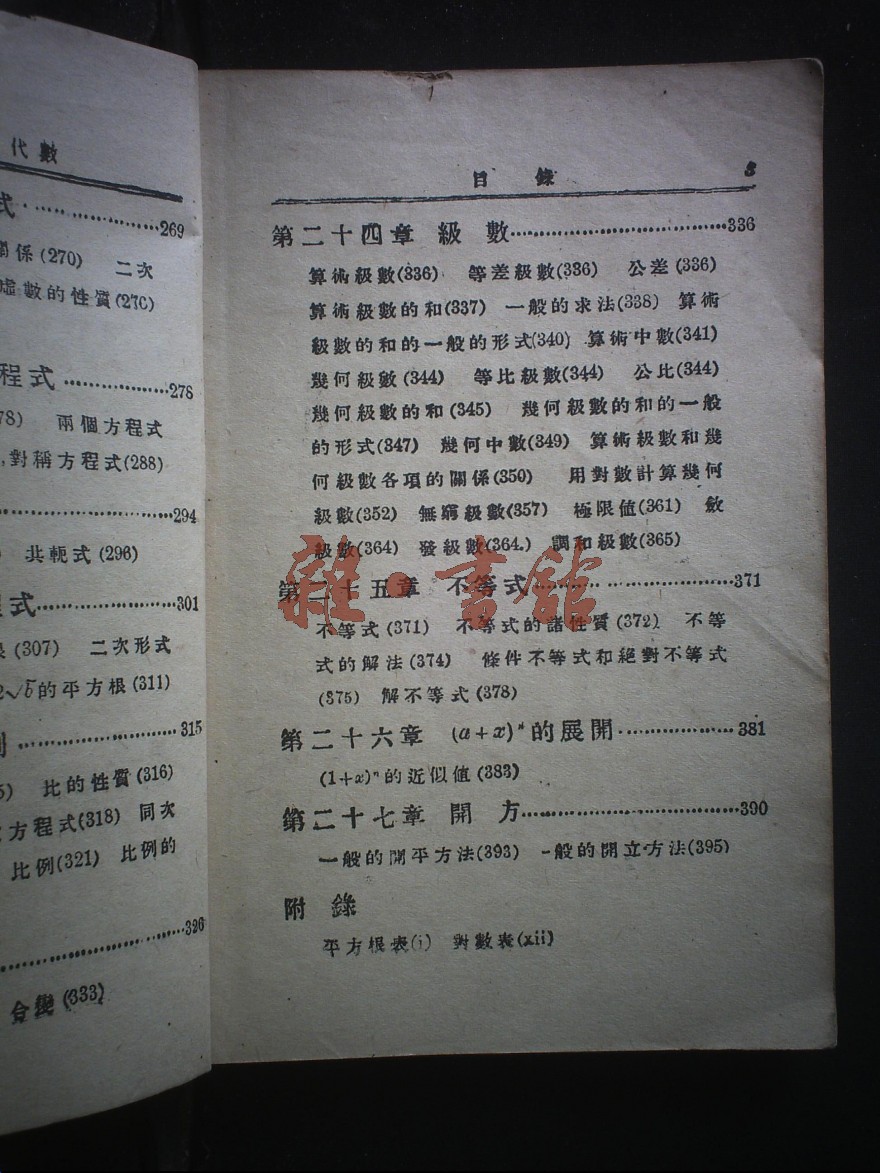 代數
式……………269
關係(270) 二次
虛數的性質(270)
程式……………278
78) 兩個方程式
,對稱方程式(288)
……………294
共軛式(296)
程式……………301
(307) 二次形式
2√b的平方根(311)
……………315
5) 比的性質(316)
方程式(318) 同次
比例(321) 比例的
……………326
合變(333)
目錄 3
第二十四章 級數……………336
算術級數(336) 等差級數(336) 公差(336)
算術級數的和(337) 一般的求法(338) 算術
級數的和的一般的形式(340) 算術中數(341)
幾何級數(344) 等比級數(344) 公比(344)
幾何級數的和(345) 幾何級數的和的一般
的形式(347) 幾何中數(349) 算術級數和幾
何級數各項的關係(350) 用對數計算幾何
級數(352) 無窮級數(357) 極限値(361) 斂
級數(364) 發級數(364.) 調和級數(365)
第二十五章 不等式……………371
雜·書館
不等式(371) 不等式的諸性質(372) 不等
式的解法(374) 條件不等式和絕對不等式
(375) 解不等式(378)
第二十六章 (a+x)ⁿ的展開……………381
(1+x)ⁿ的近似値(383)
第二十七章 開方……………390
一般的開平方法(393) 一般的開立方法(395)
附錄
平方根表(i) 對數表(xii)